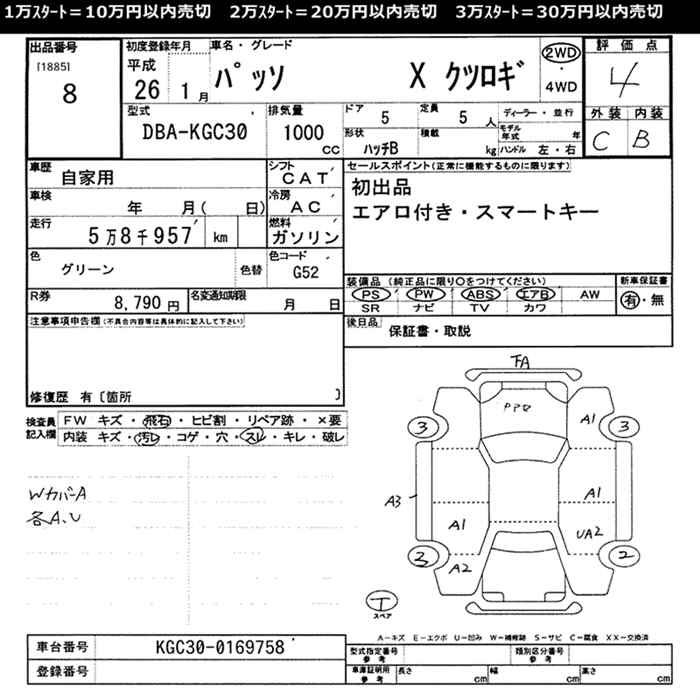 1万スタート＝10万円以内売切　2万スタート＝20万円以内売切　3万スタート＝30万円以内売切
出品番号
[1885]
8
初度登録年月
平成
26 1 月
車名・グレード
パッソ X クツロギ
2WD
・
4WD
評価点
4
外装 内装
C B
型式
DBA-KGC30
排気量
1000
CC
ドア
5
定員
5 人
ディーラー・並行
形状
ハッチB
積載
kg
モデル年式 年
ハンドル 左・右
車歴
自家用
シフト
CAT
車検
年 月( 日)
冷房
AC
走行
5万8千957 km
燃料
ガソリン
色
グリーン
色替
色コード
G52
R券
8,790 円
名変通知期限
月 日
セールスポイント(正常に機能するものに限ります)
初出品
エアロ付き・スマートキー
装備品 (純正品に限り○をつけてください)
PS PW ABS エアB AW
SR ナビ TV カワ
新車保証書
有・無
後日品
保証書・取説
注意事項申告欄(不具合内容等は具体的に記入して下さい)
修復歴 有〔箇所 〕
検査員
記入欄
FW キズ・飛石・ヒビ割・リペア跡・×要
内装 キズ・汚レ・コゲ・穴・スレ・キレ・破レ
WカバーA
各A、U
FA
A1
3
3
A3
A1
A1
UA2
3
A2
2
T
スペア
A－キズ E－エクボ U－凹み W－補修跡 S－サビ C－腐食 XX－交換済
車台番号
KGC30-0169758
登録番号
型式指定番号
参考
類別区分番号
参考
車庫証明用
参考
長さ cm 幅 cm 高さ cm